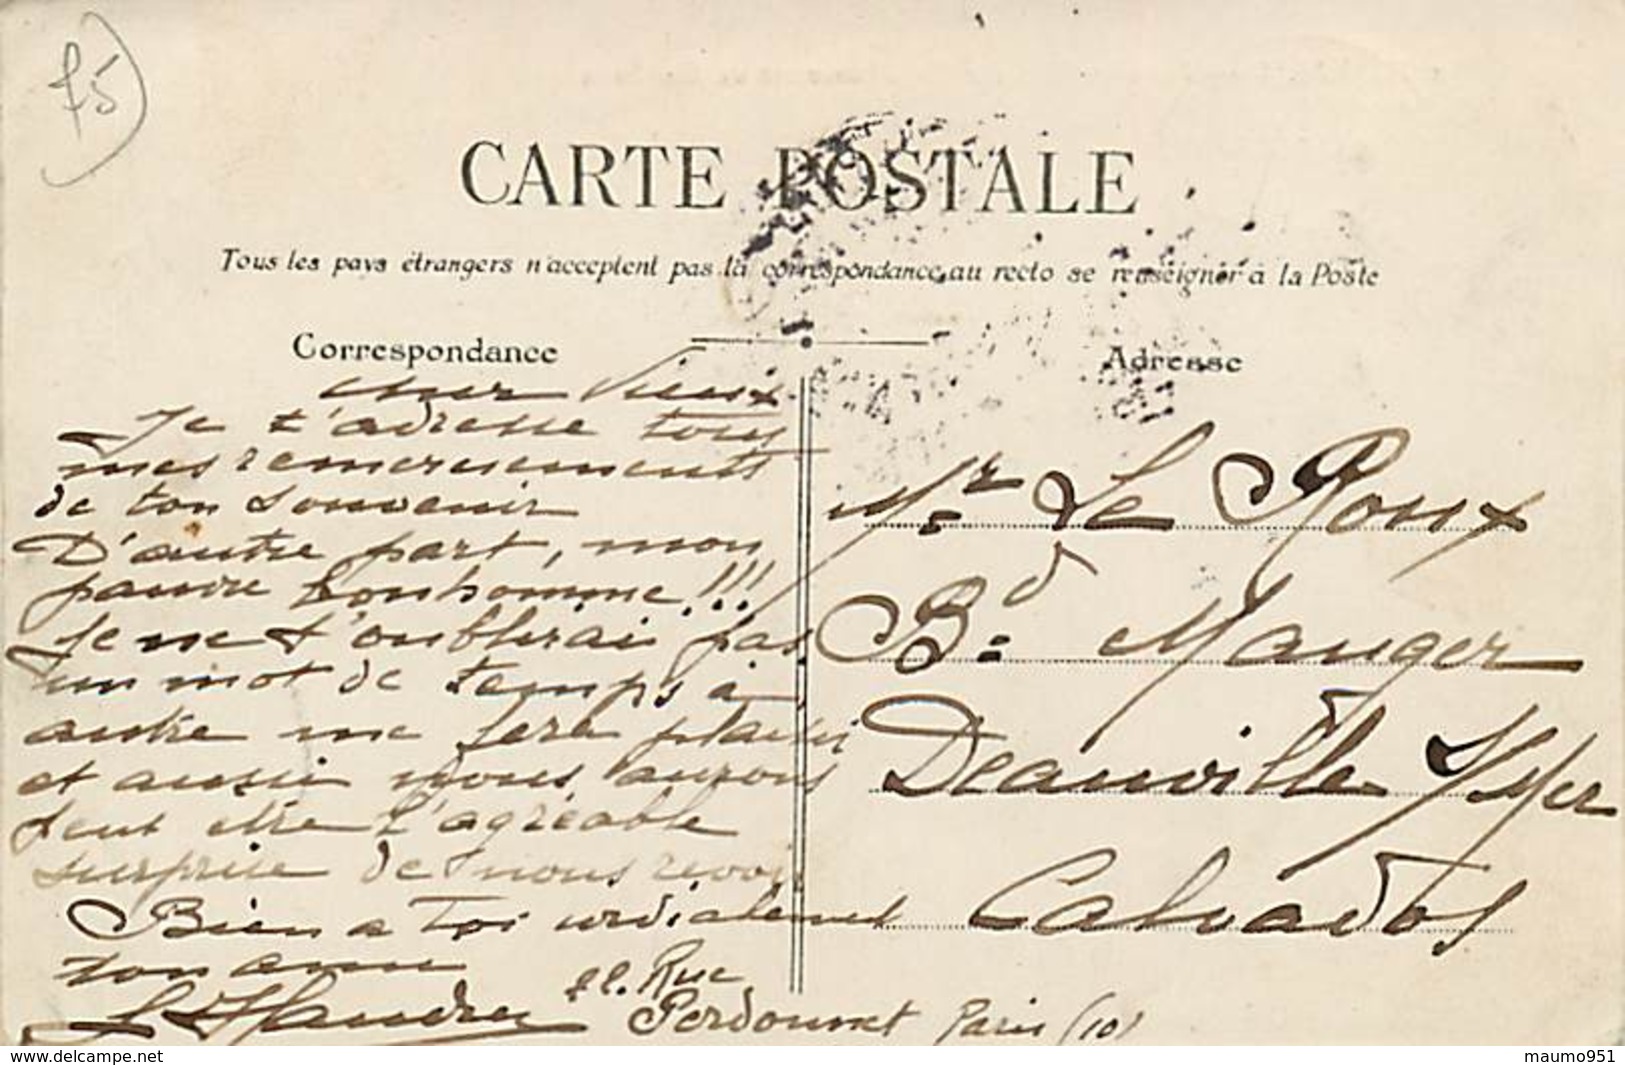 75
CARTE POSTALE
Tous les pays étrangers n'acceptent pas la correspondance au recto se renseigner à la Poste
Correspondance
Adresse
Cher Vieux
Je t'adresse tous
mes remerciements
de ton souvenir
D'autre part, mon
pauvre bonhomme!!!
Je ne t'oublirai pas
un mot de temps à
autre me fera plaisir
et aussi nous aurons
peut etre l'agréable
surprise de nous revoir
Bien a Toi cordialement
ton ami
Rue
Perdonnet Paris (10)
Mr Le Roux
Bd Mauger
Deauville s/Mer
Calvados
maumo951